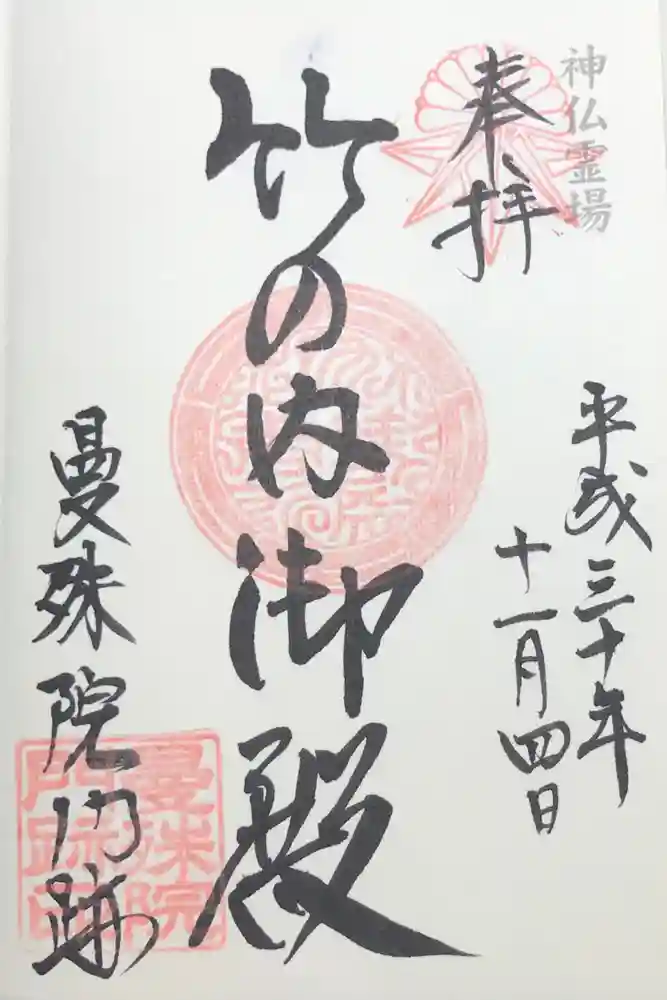 神仏霊場
奉拝
平成三十年
十一月四日
竹の内御殿
曼殊院門跡
曼殊院
門跡印